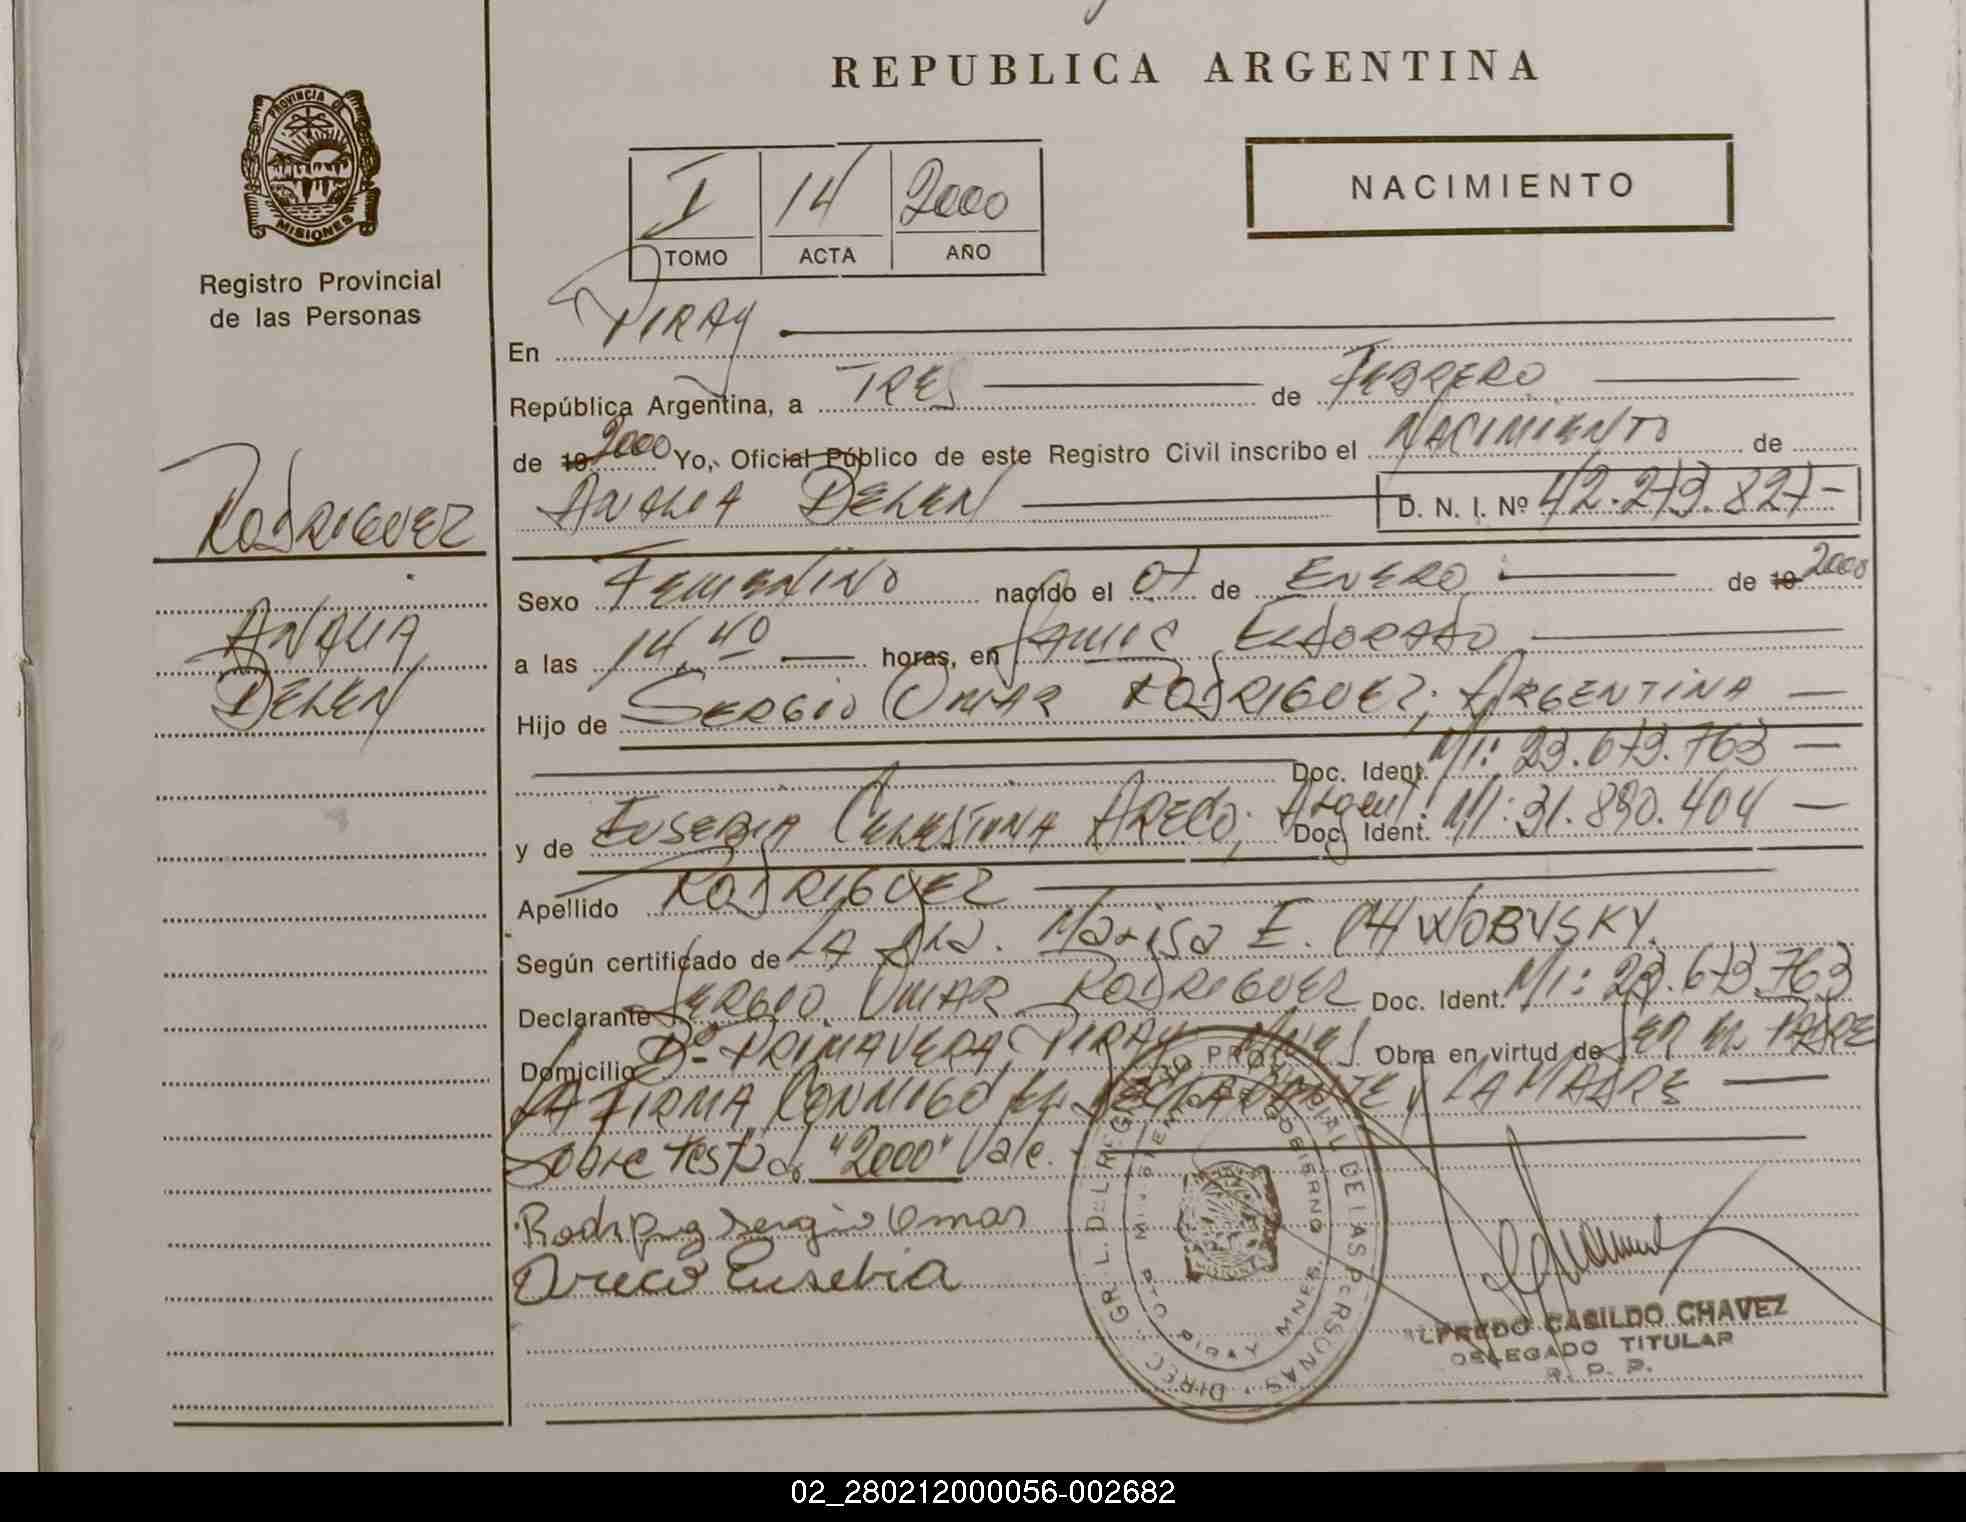 REPUBLICA ARGENTINA
PROVINCIA DE
MISIONES
Registro Provincial
de las Personas
NACIMIENTO
I 14 2000
TOMO ACTA AÑO
En PIRAY
República Argentina, a TRES de FEBRERO
de 19 2000 Yo, Oficial Público de este Registro Civil inscribo el NACIMIENTO de
ANALIA BELEN D. N. I. Nº 42.273.827-
RODRIGUEZ
ANALIA
BELEN
Sexo FEMENINO nacido el 07 de ENERO de 19 2000
a las 14,40 horas, en SAMIC ELDORADO
Hijo de SERGIO OMAR RODRIGUEZ; ARGENTINA
Doc. Ident. MI: 23.673.763
y de EUSEBIA CELESTINA ARECO; Argent. Doc. Ident. MI: 31.890.404
Apellido RODRIGUEZ
Según certificado de LA Dra. Marisa E. CHWOBYSKY.
Declarante SERGIO OMAR RODRIGUEZ Doc. Ident. MI: 23.673.763
Domicilio Bº PRIMAVERA PIRAY Mnes Obra en virtud de SER EL PADRE
LA FIRMA CONMIGO EL DECLARANTE Y LA MADRE
Sobre testado "2000" Vale.
Rodriguez Sergio Omar
Areco Eusebia
DIREC. GRL. DEL REGISTRO PROVINCIAL DE LAS PERSONAS
GOBIERNO
PTO PIRAY MNES
ALFREDO CASILDO CHAVEZ
DELEGADO TITULAR
R. P. P.
02_280212000056-002682